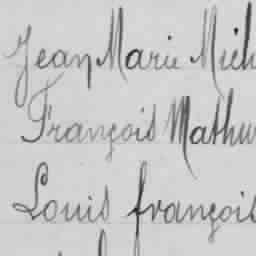 Jean Marie Mich
François Mathu
Louis françois